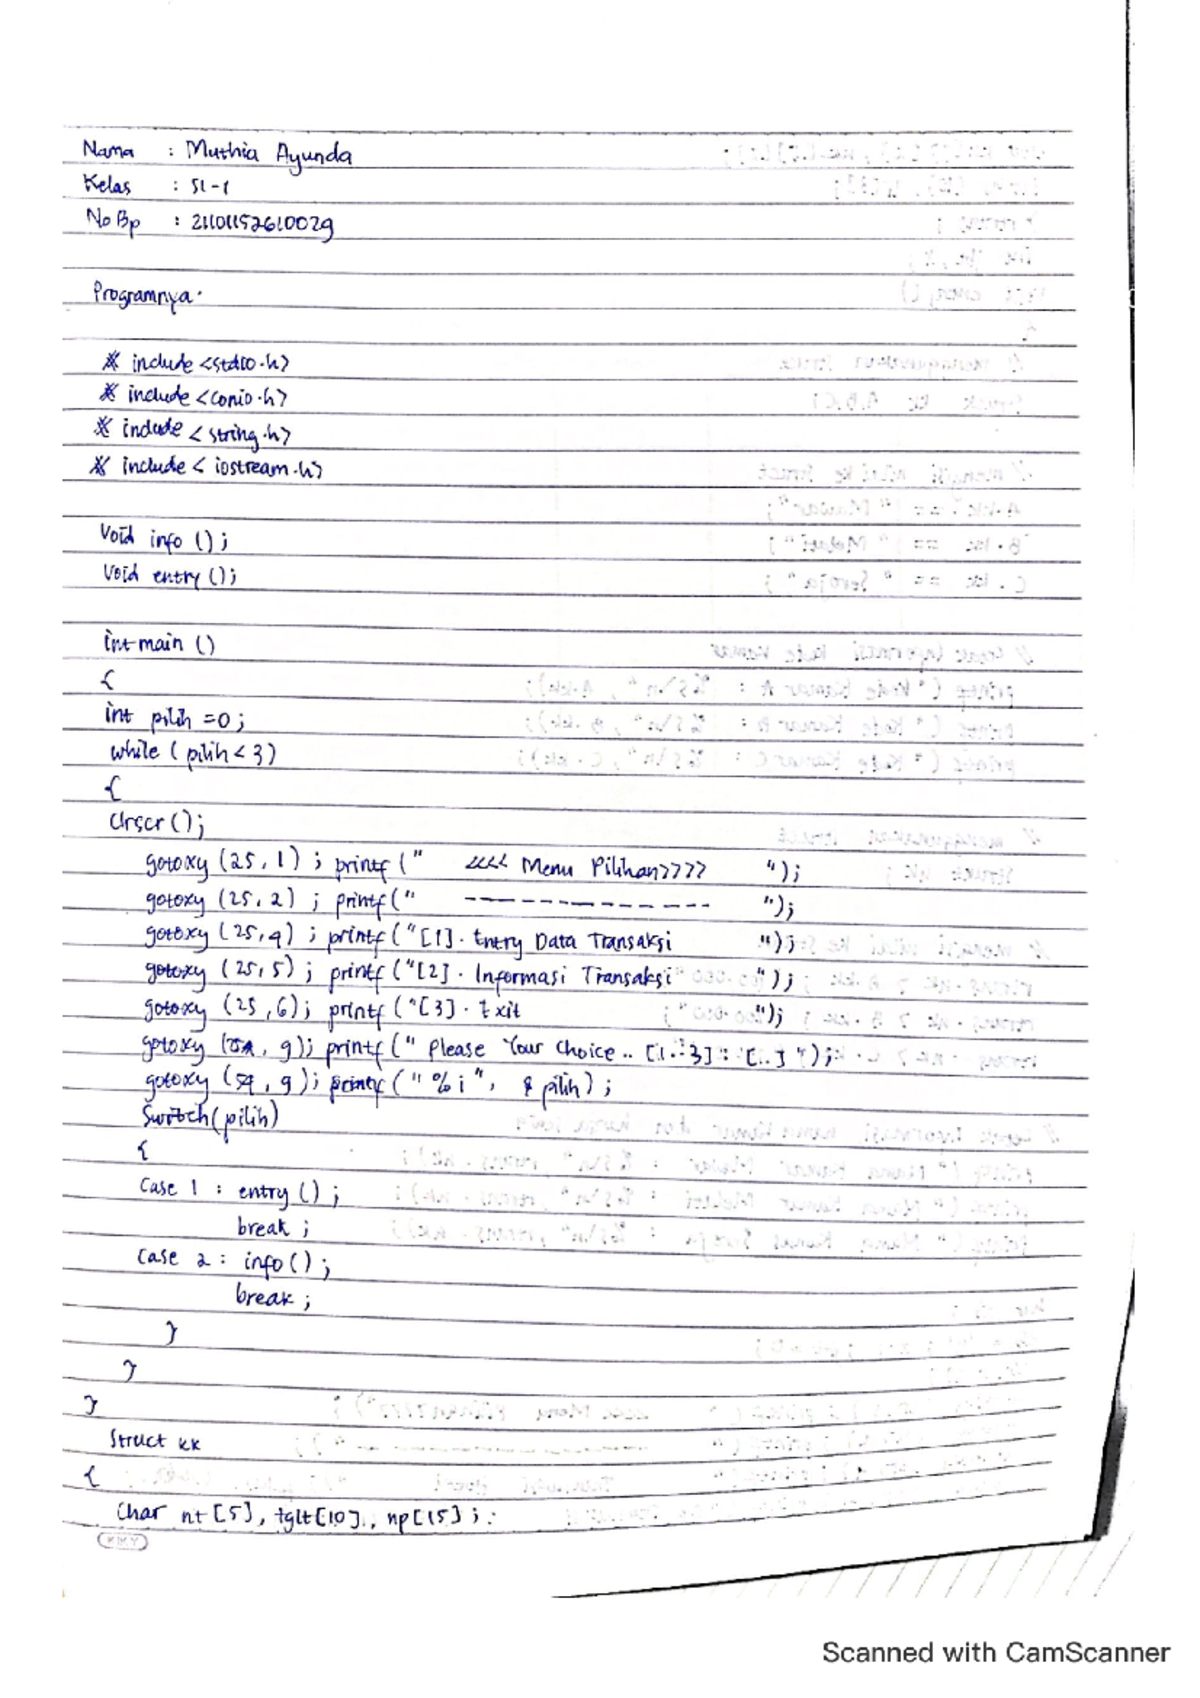 Nama : Muthia Ayunda
Kelas : SI-1
No Bp : 21101152610029
Programnya.
# include <stdio.h>
# include <conio.h>
# include <string.h>
# include < iostream.h>
Void info ();
Void entry ();
int main ()
{
int pilih =0;
while ( pilih < 3)
{
Clrscr ();
gotoxy (25, 1) ; printf (" <<<< Menu Pilihan>>>> ");
gotoxy (25, 2) ; printf (" -------------- ");
gotoxy (25, 4) ; printf ("[1]. Entry Data Transaksi ");
gotoxy (25, 5) ; printf ("[2]. Informasi Transaksi ");
gotoxy (25, 6); printf ("[3]. Exit ");
gotoxy ( , 9); printf (" Please Your Choice.. [1..3] : [..] ");
gotoxy (54, 9); printf (" % i ", & pilih) ;
Switch (pilih)
{
Case 1 : entry () ;
break ;
Case 2 : info () ;
break ;
}
}
}
Struct kk
{
Char nt [5], tglt [10], np [15] ;
KMY
Scanned with CamScanner